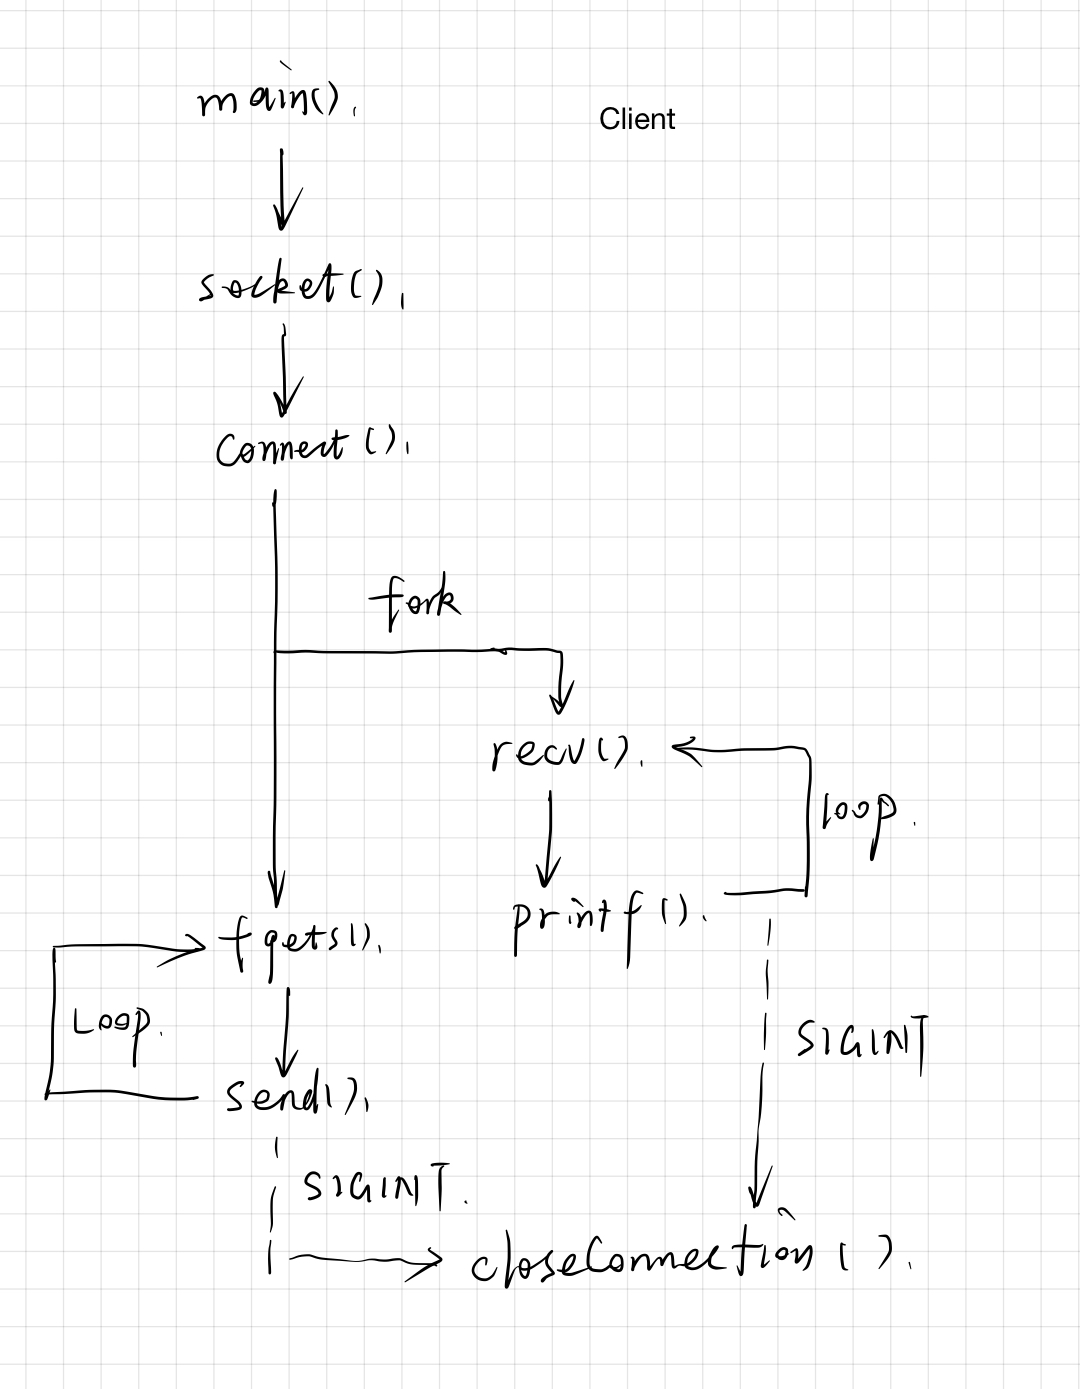 main().
Client
socket().
Connect().
fork
recv().
loop.
printf().
fgets().
Loop.
SIGINT
send().
SIGINT.
closeConnection().